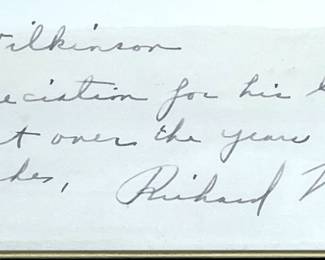 Wilkinson
eciation for his
t over the years
hes, Richard